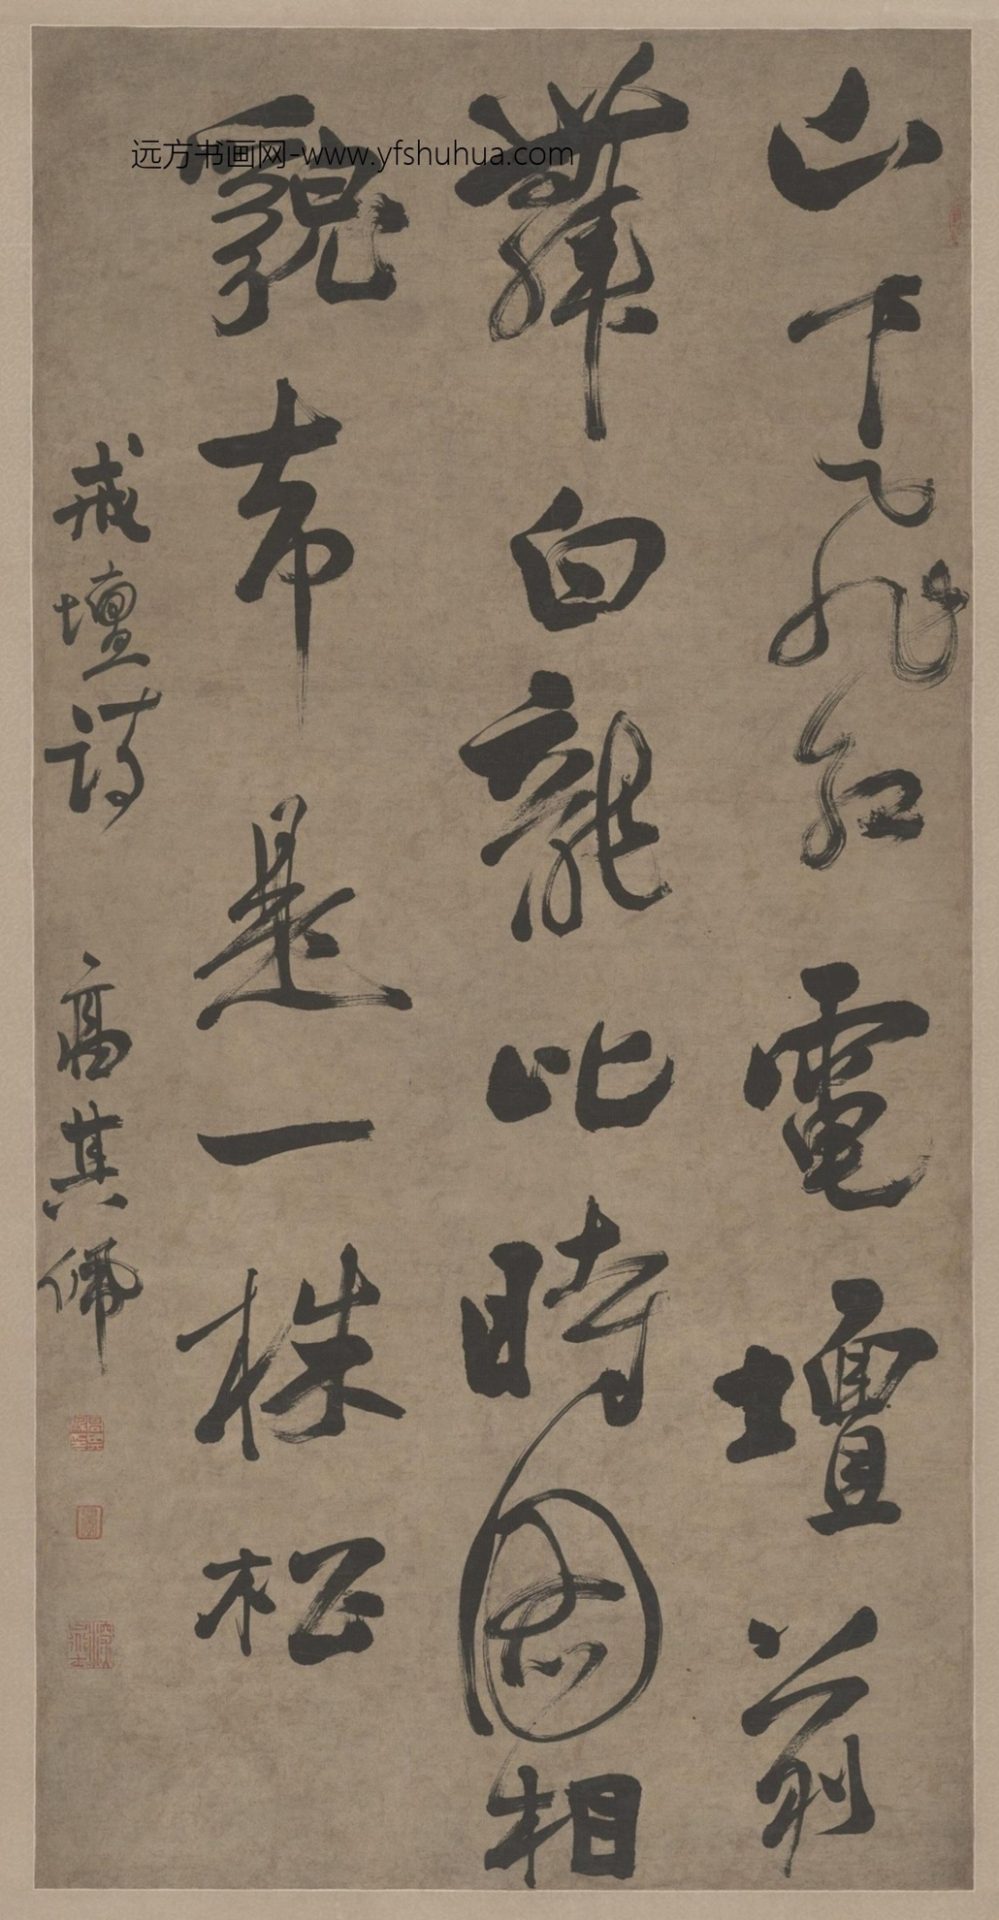 山下飛紅電壇前
舞白龍此時圖相
貌是一株松
戒壇詩 高其佩
远方书画网-www.yfshuhua.com